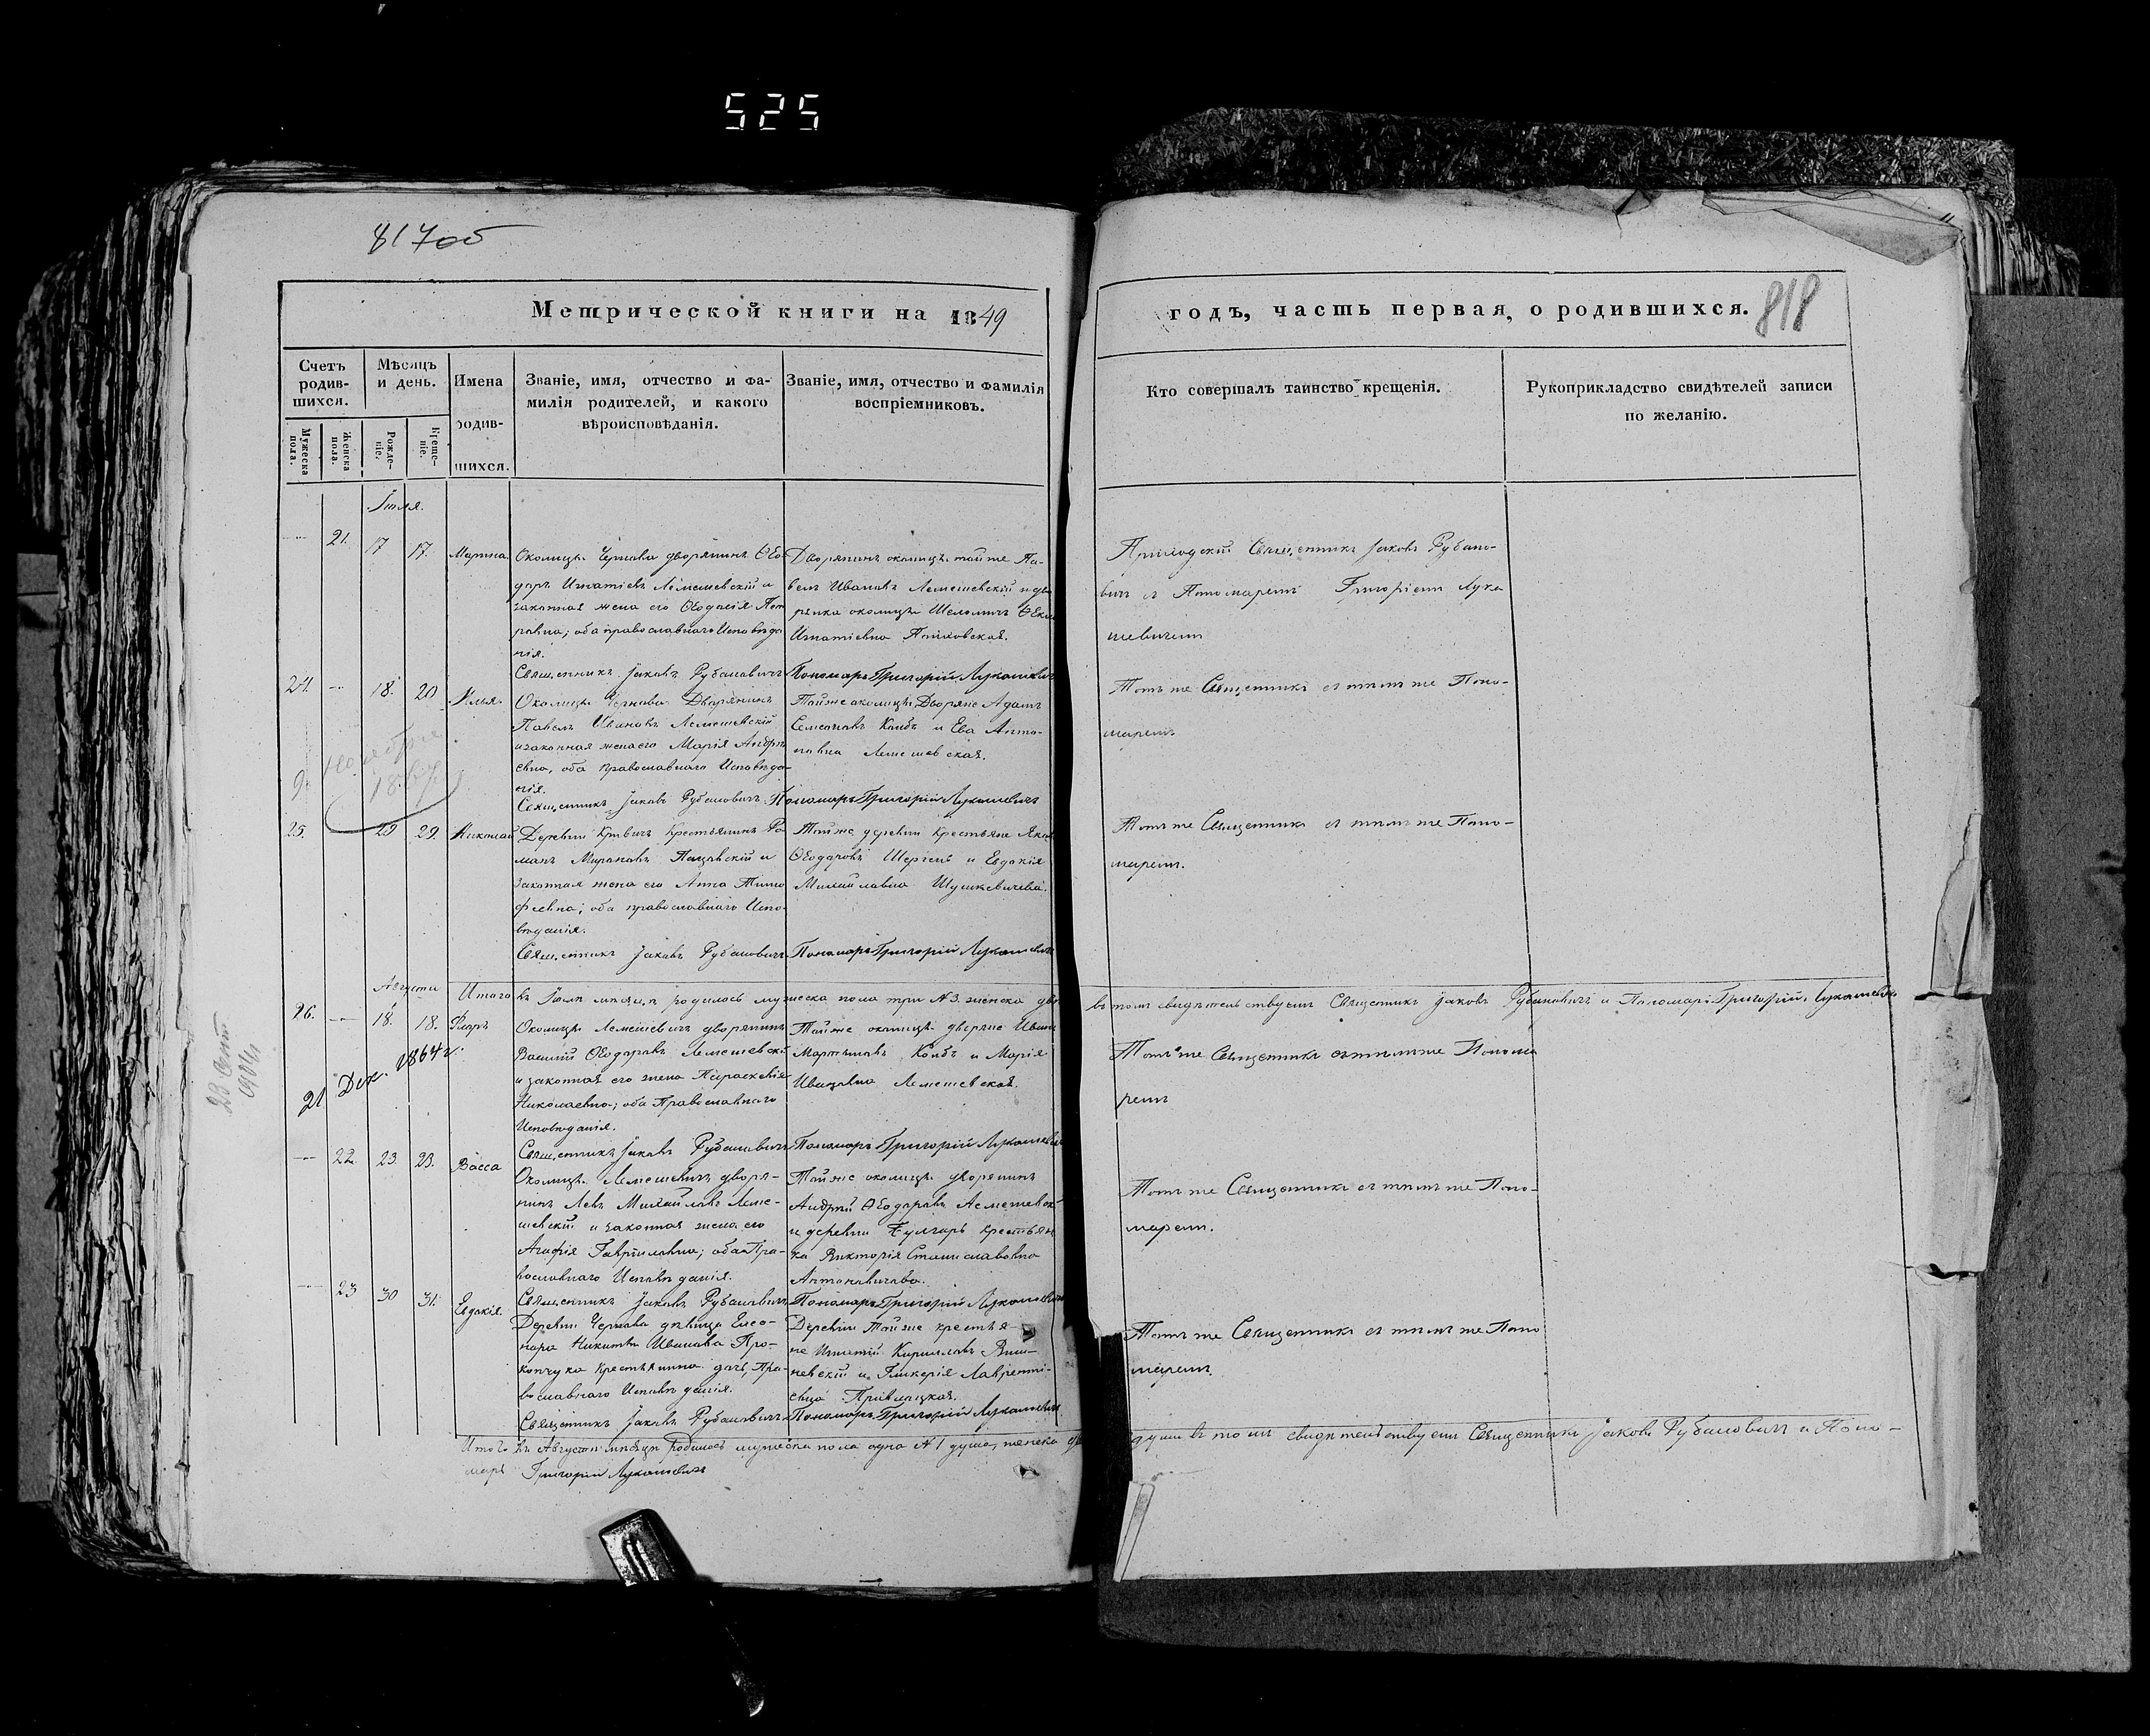 525
817об
Метрической книги на 1849
годъ, часть первая, о родившихся.
818
Счетъ родив-шихся.
Мѣсяцъ и день.
Имена родив-шихся.
Званіе, имя, отчество и фа-
милія родителей, и какого
вѣроисповѣданія.
Званіе, имя, отчество и фамилія
воспріемниковъ.
Кто совершалъ таинство крещенія.
Рукоприкладство свидѣтелей записи
по желанію.
Мужеска пола.
Женска пола.
Рожде-ніе.
Креще-ніе.
Іюля.
21. 17 17. Марина
Околицы Чернова дворянинъ Ѳео-
доръ Игнатіевъ Лемешевскій и
законная жена его Ѳеодосія Пет
ровна; оба православнаго Исповѣда
нія.
Священникъ Іаковъ Рубановичъ
Дворянинъ околицы тойже Па-
велъ Ивановъ Лемешевскій и дво
рянка околицы
Игнатіевна
Пономарь Григорій Лукашевичъ
Приходскій Священникъ Іаковъ Рубано-
вичъ съ Пономаремъ Григоріемъ Лука
шевичемъ
24. 18. 20 Илья
Околицы Чернова Дворянинъ
Павелъ Ивановъ Лемешевскій
и законная жена его Марія Андре
евна, оба православнаго Исповѣда-
нія.
Священникъ Іаковъ Рубановичъ
Тойже околицы Дворяне Адамъ
Семеновъ Колбъ и Ева Анто-
новна Лемешевская.
Пономарь Григорій Лукашевичъ
Тотъ же Священникъ съ тѣмъ же Поно-
маремъ.
9.
25. 29 29. Николай
Деревни Кривичъ Крестьянинъ Ро
манъ Мироновъ и
Законная жена его Анна Тимо
феевна; оба православнаго Испо-
вѣданія.
Священникъ Іаковъ Рубановичъ
Тойже деревни Крестьяне
Ѳеодоровъ и Евдокія
Михайловна Шушкевичева.
Пономарь Григорій Лукашевичъ
Тотъ же Священникъ съ тѣмъ же Поно-
маремъ.
Итого въ Іюлѣ мѣсяцѣ родилось мужеска пола три № 3. женска
въ томъ свидѣтельствуемъ Священникъ Іаковъ Рубановичъ и Пономарь Григорій Лукашевичъ
Августа
26. 18. 18. Флоръ
Околицы Лемешевичъ дворянинъ
Василій Ѳеодоровъ Лемешевскій
и законная его жена Параскевія
Николаевна; оба Православнаго
Исповѣданія.
Священникъ Іаковъ Рубановичъ
Тойже околицы дворяне Иванъ
Мартиновъ Колбъ и Марія
Ивановна Лемешевская.
Пономарь Григорій Лукашевичъ
Тотъ же Священникъ съ тѣмъ же Понома
ремъ
21 Дек. 1864г.
22. 23. 23. Васса
Околицы Лемешевичъ дворя-
нинъ Левъ Михайловъ Леме-
шевскій и законная жена его
Агафія Гавриловна; оба Пра-
вославнаго Исповѣданія.
Священникъ Іаковъ Рубановичъ
Тойже околицы дворянинъ
Андрей Ѳеодоровъ Лемешевскій
и деревни крестьян
ка Викторія Станиславовна
Антоновичева.
Пономарь Григорій Лукашевичъ
Тотъ же Священникъ съ тѣмъ же Поно-
маремъ.
23 30 31. Евдокія.
Деревни Чернова дѣвица Елео-
нора Никиты Иванова Про-
копчука крестьянина дочь, Пра-
вославнаго Исповѣданія.
Священникъ Іаковъ Рубановичъ
Деревни Тойже крестья-
не Игнатій Кириловъ Виш-
невскій и Гликерія Лавренті-
ева
Пономарь Григорій Лукашевичъ
Тотъ же Священникъ съ тѣмъ же Поно
маремъ.
Итого въ Августѣ мѣсяцѣ родилось мужеска пола одна № 1 душа, женска
души въ томъ свидѣтельствуемъ Священникъ Іаковъ Рубановичъ и Поно-
марь Григорій Лукашевичъ